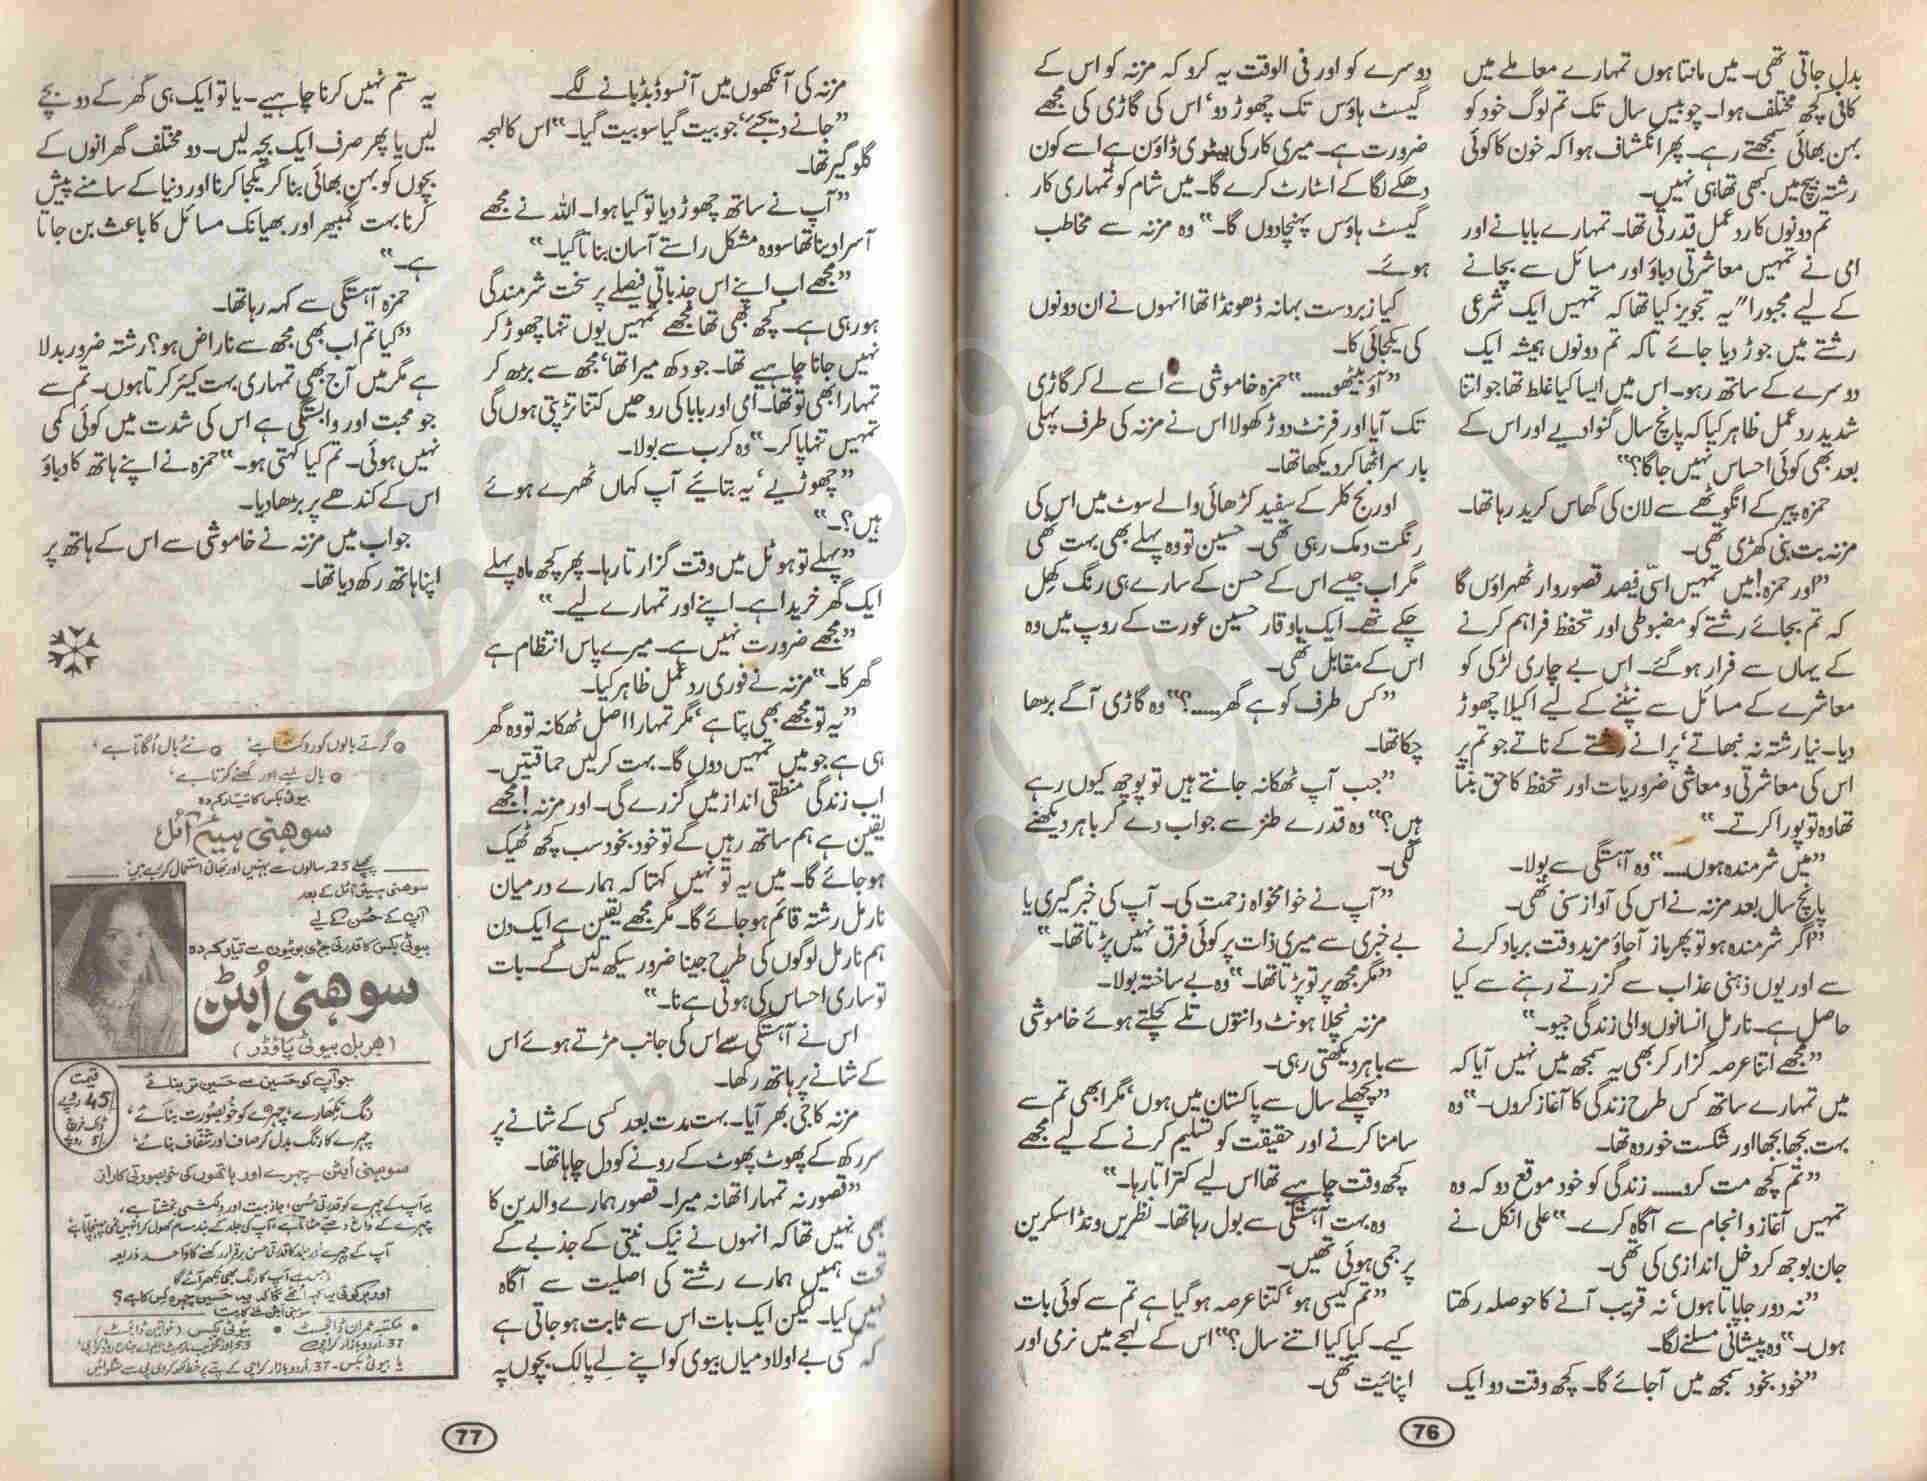 بدل جاتی تھی۔ میں مانتا ہوں تمہارے معاملے میں
کافی کچھ مختلف ہوا۔ چوبیس سال تک تم لوگ خود کو
بہن بھائی سمجھتے رہے۔ پھر انکشاف ہوا کہ خون کا کوئی
رشتہ بیچ میں کبھی تھا ہی نہیں۔
تم دونوں کا رد عمل قدرتی تھا۔ تمہارے بابا نے اور
امی نے تمہیں معاشرتی دباؤ اور مسائل سے بچانے
کے لیے مجبورا" یہ تجویز کیا تھا کہ تمہیں ایک شرعی
رشتے میں جوڑ دیا جائے تاکہ تم دونوں ہمیشہ ایک
دوسرے کے ساتھ رہو۔ اس میں ایسا کیا غلط تھا جو اتنا
شدید رد عمل ظاہر کیا کہ پانچ سال گنوا دیے اور اس کے
بعد بھی کوئی احساس نہیں جاگا؟“
حمزہ پیر کے انگوٹھے سے لان کی گھاس کرید رہا تھا۔
مزنہ بت بنی کھڑی تھی۔
”اور حمزہ! میں تمہیں اسّی فیصد قصوروار ٹھہراؤں گا
کہ تم بجائے رشتے کو مضبوطی اور تحفظ فراہم کرنے
کے یہاں سے فرار ہو گئے۔ اس بے چاری لڑکی کو
معاشرے کے مسائل سے نپٹنے کے لیے اکیلا چھوڑ
دیا۔ نیا رشتہ نہ نبھاتے‘ پرانے رشتے کے ناتے جو تم پر
اس کی معاشرتی و معاشی ضروریات اور تحفظ کا حق بنتا
تھا وہ تو پورا کرتے۔“
”میں شرمندہ ہوں۔۔۔۔“ وہ آہستگی سے بولا۔
پانچ سال بعد مزنہ نے اس کی آواز سنی تھی۔
”اگر شرمندہ ہو تو پھر باز آجاؤ مزید وقت برباد کرنے
سے اور یوں ذہنی عذاب سے گزرتے رہنے سے کیا
حاصل ہے۔ نارمل انسانوں والی زندگی جیو۔“
”مجھے اتنا عرصہ گزار کر بھی یہ سمجھ میں نہیں آیا کہ
میں تمہارے ساتھ کس طرح زندگی کا آغاز کروں۔“ وہ
بہت بجھا بجھا اور شکست خوردہ تھا۔
”تم کچھ مت کرو۔۔۔۔ زندگی کو خود موقع دو کہ وہ
تمہیں آغاز و انجام سے آگاہ کرے۔“ علی انکل نے
جان بوجھ کر دخل اندازی کی تھی۔
”نہ دور جا پاتا ہوں‘ نہ قریب آنے کا حوصلہ رکھتا
ہوں۔“ وہ پیشانی مسلنے لگا۔
”خود بخود سمجھ میں آجائے گا۔ کچھ وقت دو ایک
دوسرے کو اور فی الوقت یہ کرو کہ مزنہ کو اس کے
گیسٹ ہاؤس تک چھوڑ دو‘ اس کی گاڑی کی مجھے
ضرورت ہے۔ میری کار کی بیٹری ڈاؤن ہے اسے کون
دھکے لگا کے اسٹارٹ کرے گا۔ میں شام کو تمہاری کار
گیسٹ ہاؤس پہنچا دوں گا۔“ وہ مزنہ سے مخاطب
ہوئے۔
کیا زبردست بہانہ ڈھونڈا تھا انہوں نے ان دونوں
کی یکجائی کا۔
”آؤ بیٹھو۔۔۔۔“ حمزہ خاموشی سے اسے لے کر گاڑی
تک آیا اور فرنٹ دوڑ کھولا اس نے مزنہ کی طرف پہلی
بار سر اٹھا کر دیکھا تھا۔
اورنج کلر کے سفید کڑھائی والے سوٹ میں اس کی
رنگت دمک رہی تھی۔ حسین تو وہ پہلے بھی بہت تھی
مگر اب جیسے اس کے حسن کے سارے ہی رنگ کھِل
چکے تھے۔ ایک باوقار حسین عورت کے روپ میں وہ
اس کے مقابل تھی۔
”کس طرف کو ہے گھر۔۔۔۔؟“ وہ گاڑی آگے بڑھا
چکا تھا۔
”جب آپ ٹھکانہ جانتے ہیں تو پوچھ کیوں رہے
ہیں؟“ وہ قدرے طنز سے جواب دے کر باہر دیکھنے
لگی۔
”آپ نے خوامخواہ زحمت کی۔ آپ کی خبر گیری یا
بے خبری سے میری ذات پر کوئی فرق نہیں پڑتا تھا۔“
”مگر مجھ پر تو پڑتا تھا۔“ وہ بے ساختہ بولا۔
مزنہ نچلا ہونٹ دانتوں تلے کچلتے ہوئے خاموشی
سے باہر دیکھتی رہی۔
”پچھلے سال سے پاکستان میں ہوں‘ مگر ابھی تم سے
سامنا کرنے اور حقیقت کو تسلیم کرنے کے لیے مجھے
کچھ وقت چاہیے تھا اس لیے کتراتا رہا۔“
وہ بہت آہستگی سے بول رہا تھا۔ نظریں ونڈ اسکرین
پر جمی ہوئی تھیں۔
”تم کیسی ہو‘ کتنا عرصہ ہو گیا ہے تم سے کوئی بات
کیے۔ کیا کیا اتنے سال؟“ اس کے لہجے میں نرمی اور
اپنائیت تھی۔
76
مزنہ کی آنکھوں میں آنسو ڈبڈبانے لگے۔
”جانے دیجئے‘ جو بیت گیا سو بیت گیا۔“ اس کا لہجہ
گلو گیر تھا۔
”آپ نے ساتھ چھوڑ دیا تو کیا ہوا۔ اللہ نے مجھے
آسرا دینا تھا سو وہ مشکل راستے آسان بناتا گیا۔“
”مجھے اب اپنے اس جذباتی فیصلے پر سخت شرمندگی
ہو رہی ہے۔ کچھ بھی تھا مجھے تمہیں یوں تنہا چھوڑ کر
نہیں جانا چاہیے تھا۔ جو دکھ میرا تھا‘ مجھ سے بڑھ کر
تمہارا بھی تو تھا۔ امی اور بابا کی روحیں کتنا تڑپتی ہوں گی
تمہیں تنہا پا کر۔“ وہ کرب سے بولا۔
”چھوڑیے‘ یہ بتائیے آپ کہاں ٹھہرے ہوئے
ہیں؟۔“
”پہلے تو ہوٹل میں وقت گزارتا رہا۔ پھر کچھ ماہ پہلے
ایک گھر خریدا ہے۔ اپنے اور تمہارے لیے۔“
”مجھے ضرورت نہیں ہے۔ میرے پاس انتظام ہے
گھر کا۔“ مزنہ نے فوری رد عمل ظاہر کیا۔
”یہ تو مجھے بھی پتا ہے‘ مگر تمہارا اصل ٹھکانہ تو وہ گھر
ہی ہے جو میں تمہیں دوں گا۔ بہت کرلیں حماقتیں۔
اب زندگی منطقی انداز میں گزرے گی۔ اور مزنہ! مجھے
یقین ہے ہم ساتھ رہیں گے تو خود بخود سب کچھ ٹھیک
ہو جائے گا۔ میں یہ تو نہیں کہتا کہ ہمارے درمیان
نارمل رشتہ قائم ہو جائے گا۔ مگر مجھے یقین ہے ایک دن
ہم نارمل لوگوں کی طرح جینا ضرور سیکھ لیں گے۔ بات
تو ساری احساس کی ہوتی ہے نا۔“
اس نے آہستگی سے اس کی جانب مڑتے ہوئے اس
کے شانے پر ہاتھ رکھا۔
مزنہ کا جی بھر آیا۔ بہت مدت بعد کسی کے شانے پر
سر رکھ کے پھوٹ پھوٹ کے رونے کو دل چاہا تھا۔
”قصور نہ تمہارا تھا نہ میرا۔ قصور ہمارے والدین کا
بھی نہیں تھا کہ انہوں نے نیک نیتی کے جذبے کے
تحت ہمیں ہمارے رشتے کی اصلیت سے آگاہ
نہیں کیا۔ لیکن ایک بات اس سے ثابت ہو جاتی ہے
کہ کسی بے اولاد میاں بیوی کو اپنے لے پالک بچوں پہ
یہ ستم نہیں کرنا چاہیے۔ یا تو ایک ہی گھر کے دو بچے
لیں یا پھر صرف ایک بچہ لیں۔ دو مختلف گھرانوں کے
بچوں کو بہن بھائی بنا کر یکجا کرنا اور دنیا کے سامنے پیش
کرنا بہت گمبھیر اور بھیانک مسائل کا باعث بن جاتا
ہے۔“
حمزہ آہستگی سے کہہ رہا تھا۔
”کیا تم اب بھی مجھ سے ناراض ہو؟ رشتہ ضرور بدلا
ہے مگر میں آج بھی تمہاری بہت کیئر کرتا ہوں۔ تم سے
جو محبت اور وابستگی ہے اس کی شدت میں کوئی کمی
نہیں ہوئی۔ تم کیا کہتی ہو۔“ حمزہ نے اپنے ہاتھ کا دباؤ
اس کے کندھے پر بڑھا دیا۔
جواب میں مزنہ نے خاموشی سے اس کے ہاتھ پر
اپنا ہاتھ رکھ دیا تھا۔
گرتے بالوں کو روکتا ہے، نئے بال اُگاتا ہے،
بال لمبے اور گھنے کرتا ہے،
بیوٹی بکس کا تیار کردہ
سوہنی ہیئر آئل
پچھلے 25 سالوں سے بہنیں اور بھائی استعمال کر رہے ہیں۔
سوہنی ہیئر آئل کے بعد
آپ کے حُسن کے لیے
بیوٹی بکس کا قدرتی جڑی بوٹیوں سے تیار کردہ
سوہنی اُبٹن
(ہربل بیوٹی پاؤڈر)
قیمت
45/- روپے
ڈاک خرچ
جو آپ کو حَسین سے حَسین تر بنائے
رنگ نکھارے، چہرے کو خوبصُورت بنائے،
چہرے کا رنگ بدل کر صاف اور شفاف بنائے،
سوہنی اُبٹن۔ چہرے اور ہاتھوں کی خوبصورتی کا راز
یہ آپ کے چہرے کو قدرتی حُسن، جاذبیت اور دلکشی بخشتا ہے،
آپ کے چہرے اور جلد کا قدرتی حسن برقرار رکھنے کا واحد ذریعہ
جس سے آپ کا رنگ بھی نکھر آئے گا
اور ہر کوئی یہ کہہ اُٹھے گا کہ یہ حَسین چہرہ کِس کا ہے؟
مکتبہ عمران ڈائجسٹ
37۔ اُردو بازار کراچی
بیوٹی بکس (خواتین ڈائجسٹ)
یا بیوٹی بکس۔ 37، اُردو بازار کراچی کے پتے پر خط لکھ کر وی پی سے منگوائیں
77